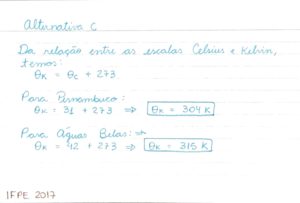 Alternativa C
Da relação entre as escalas Celsius e Kelvin,
temos:
θK = θC + 273
Para Pernambuco:
θK = 31 + 273 ⇒ θK = 304 K
Para Águas Belas:→
θK = 42 + 273 ⇒ θK = 315 K
IFPE 2017